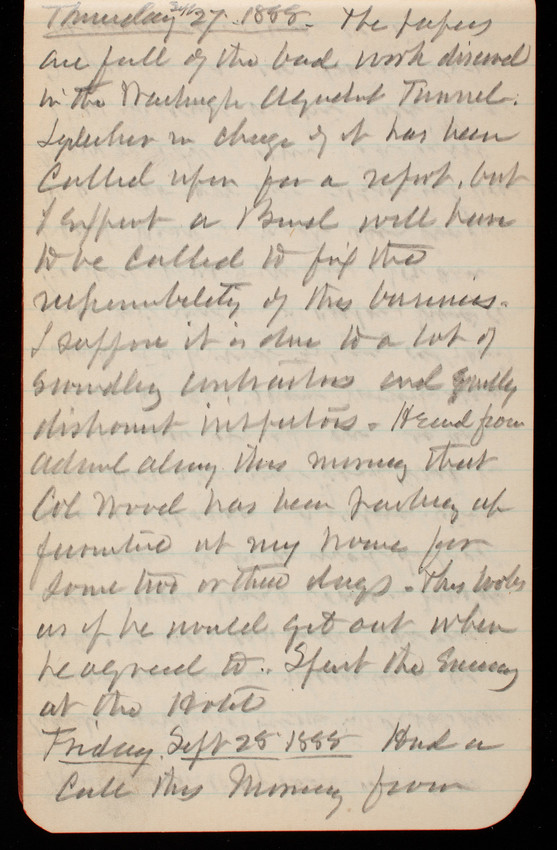 Thursday 27. 1888. The papers
are full of the bad work discovd
in the Washingtn Aqueduct Tunnel.
Lydecker in charge of it has been
called upon for a report, but
I expect a Board will have
to be called to fix the
responsibility of this business.
I suppose it is due to a lot of
swindling contractors and
dishonest inspectors. Heard from
this morning that
Col Wood has been packing up
furniture at my house for
some two or three days. This looks
as if he would get out when
he agreed to. Spent the Evening
at the Hotel
Friday. Sept 28 1888 Had a
Call this Morning from